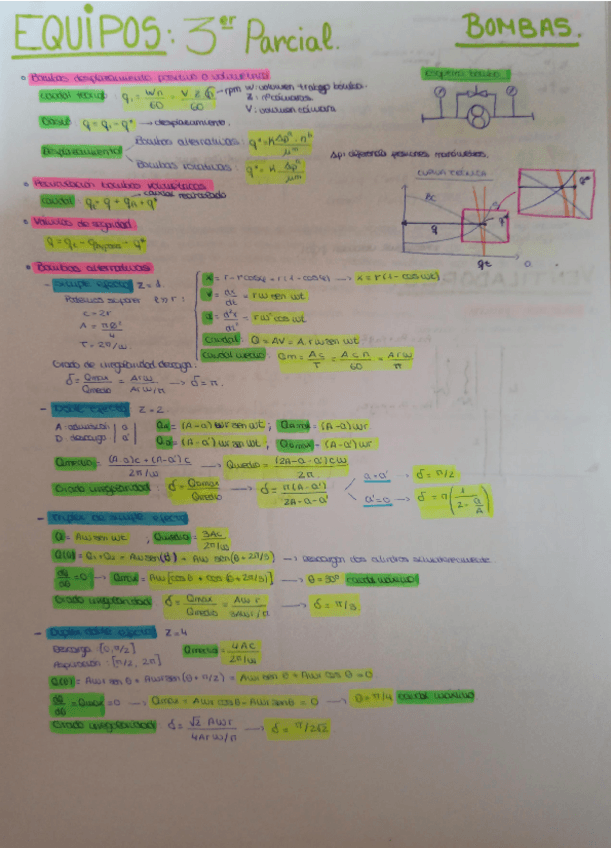 EQUIPOS: 3er Parcial.
BOMBAS.
• Bombas desplazamiento positivo o volumétricas
Caudal teórico: q₁ = Wn/60 = V Z n/60
rpm W: volumen trabajo bomba.
Z: nº cámaras.
V: volumen cámara
Caudal: q = q₁ - q* → desplazamiento.
Desplazamiento
Bombas alternativas: q* = K Δpᵃ · nᵇ/μᵐ
Bombas rotativas: q* = K Δpᵃ/μᵐ
Δp: diferencia presiones manométricas.
CURVA TEÓRICA
BC
q
q*
qt
Q
caudal:
• Válvulas de seguridad
• Bombas alternativas
- Simple efecto Z = 1.
c = 2r
A = πΦ²/4
T = 2π/ω
x = r - r cosφ = r(1 - cosφ) → x = r(1 - cos ωt)
v = ds/dt = rω sen ωt
Caudal: Q = AV = A r ω sen ωt
Caudal medio: Qm = Ac/T = Acn/60 = Arω/π
Grado de irregularidad descarga.
δ = Qmax/Qmedio = Arω/Acω/π → δ = π.
- Doble efecto Z = 2
A: aspiración | a
D: descarga | a'
QA = (A-a) ωr sen ωt; QA max = (A-a) ωr
QD = (A-a') ωr sen ωt; QD max = (A-a') ωr
Qmedio = (A-a)c + (A-a')c/2π/ω → Qmedio = (2A-a-a')cω/2π
Grado irregularidad: δ = Qmax/Qmedio → δ = π(A-a')/2A-a-a'
a = a' → δ = π/2
a' = 0 → δ = π(1/2 - a/A)
simple efecto
Q = Aωr sen ωt; Qmedio = 3Ac/2π/ω
→ Descargan dos cilindros simultáneamente
→ θ = 30º caudal máximo
Grado irregularidad: δ = Qmax/Qmedio = Aωr/3Aωr/π → δ = π/3
- Duplex doble efecto Z = 4
Descarga: [0, π/2]
Aspiración: [π/2, 2π]
Qmedio = 4Ac/2π/ω
Q(θ) = Aωr sen θ + Aωr sen(θ + π/2) = Aωr sen θ + Aωr cos θ = 0
dQ/dθ = Qmax = 0 → Qmax = Aωr cos θ - Aωr sen θ = 0 → θ = π/4 caudal máximo
Grado irregularidad: δ = √2 Aωr/4Arω/π → δ = π/2√2